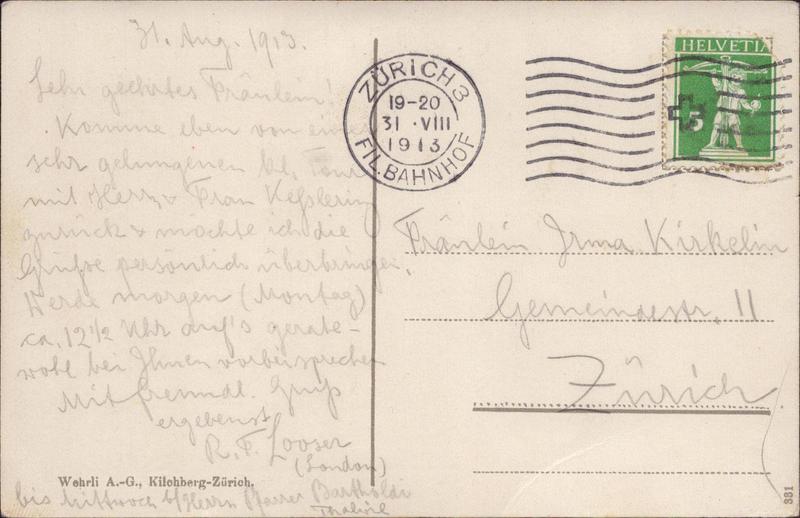 31. Aug. 1913.
Sehr geehrtes Fräulein!
Komme eben von einer
sehr gelungenen kl. Tour
mit Herrn & Frau Keßlering
zurück & möchte ich die
Grüße persönlich überbringen,
Werde morgen (Montag)
ca. 12½ Uhr auf's gerate-
wohl bei Ihnen vorbeisprechen
Mit freundl. Gruß
ergebenst
R. F. Looser
(London)
Wehrli A.-G., Kilchberg-Zürich.
bis Mittwoch b/Herrn Pfarrer Bartholdi
ZÜRICH 3
19-20
31 · VIII
1913
FIL. BAHNHOF
HELVETIA
5
Fräulein Irma Kirkelin
Gemeindestr. 11
Zürich
331